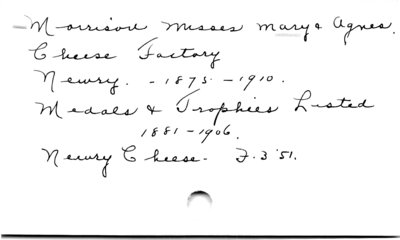 Morrison Misses Mary & Agnes.
Cheese Factory
Newry. - 1875 - 1910.
Medals & Trophies Listed
1881 - 1906.
Newry Cheese. F.3'51.